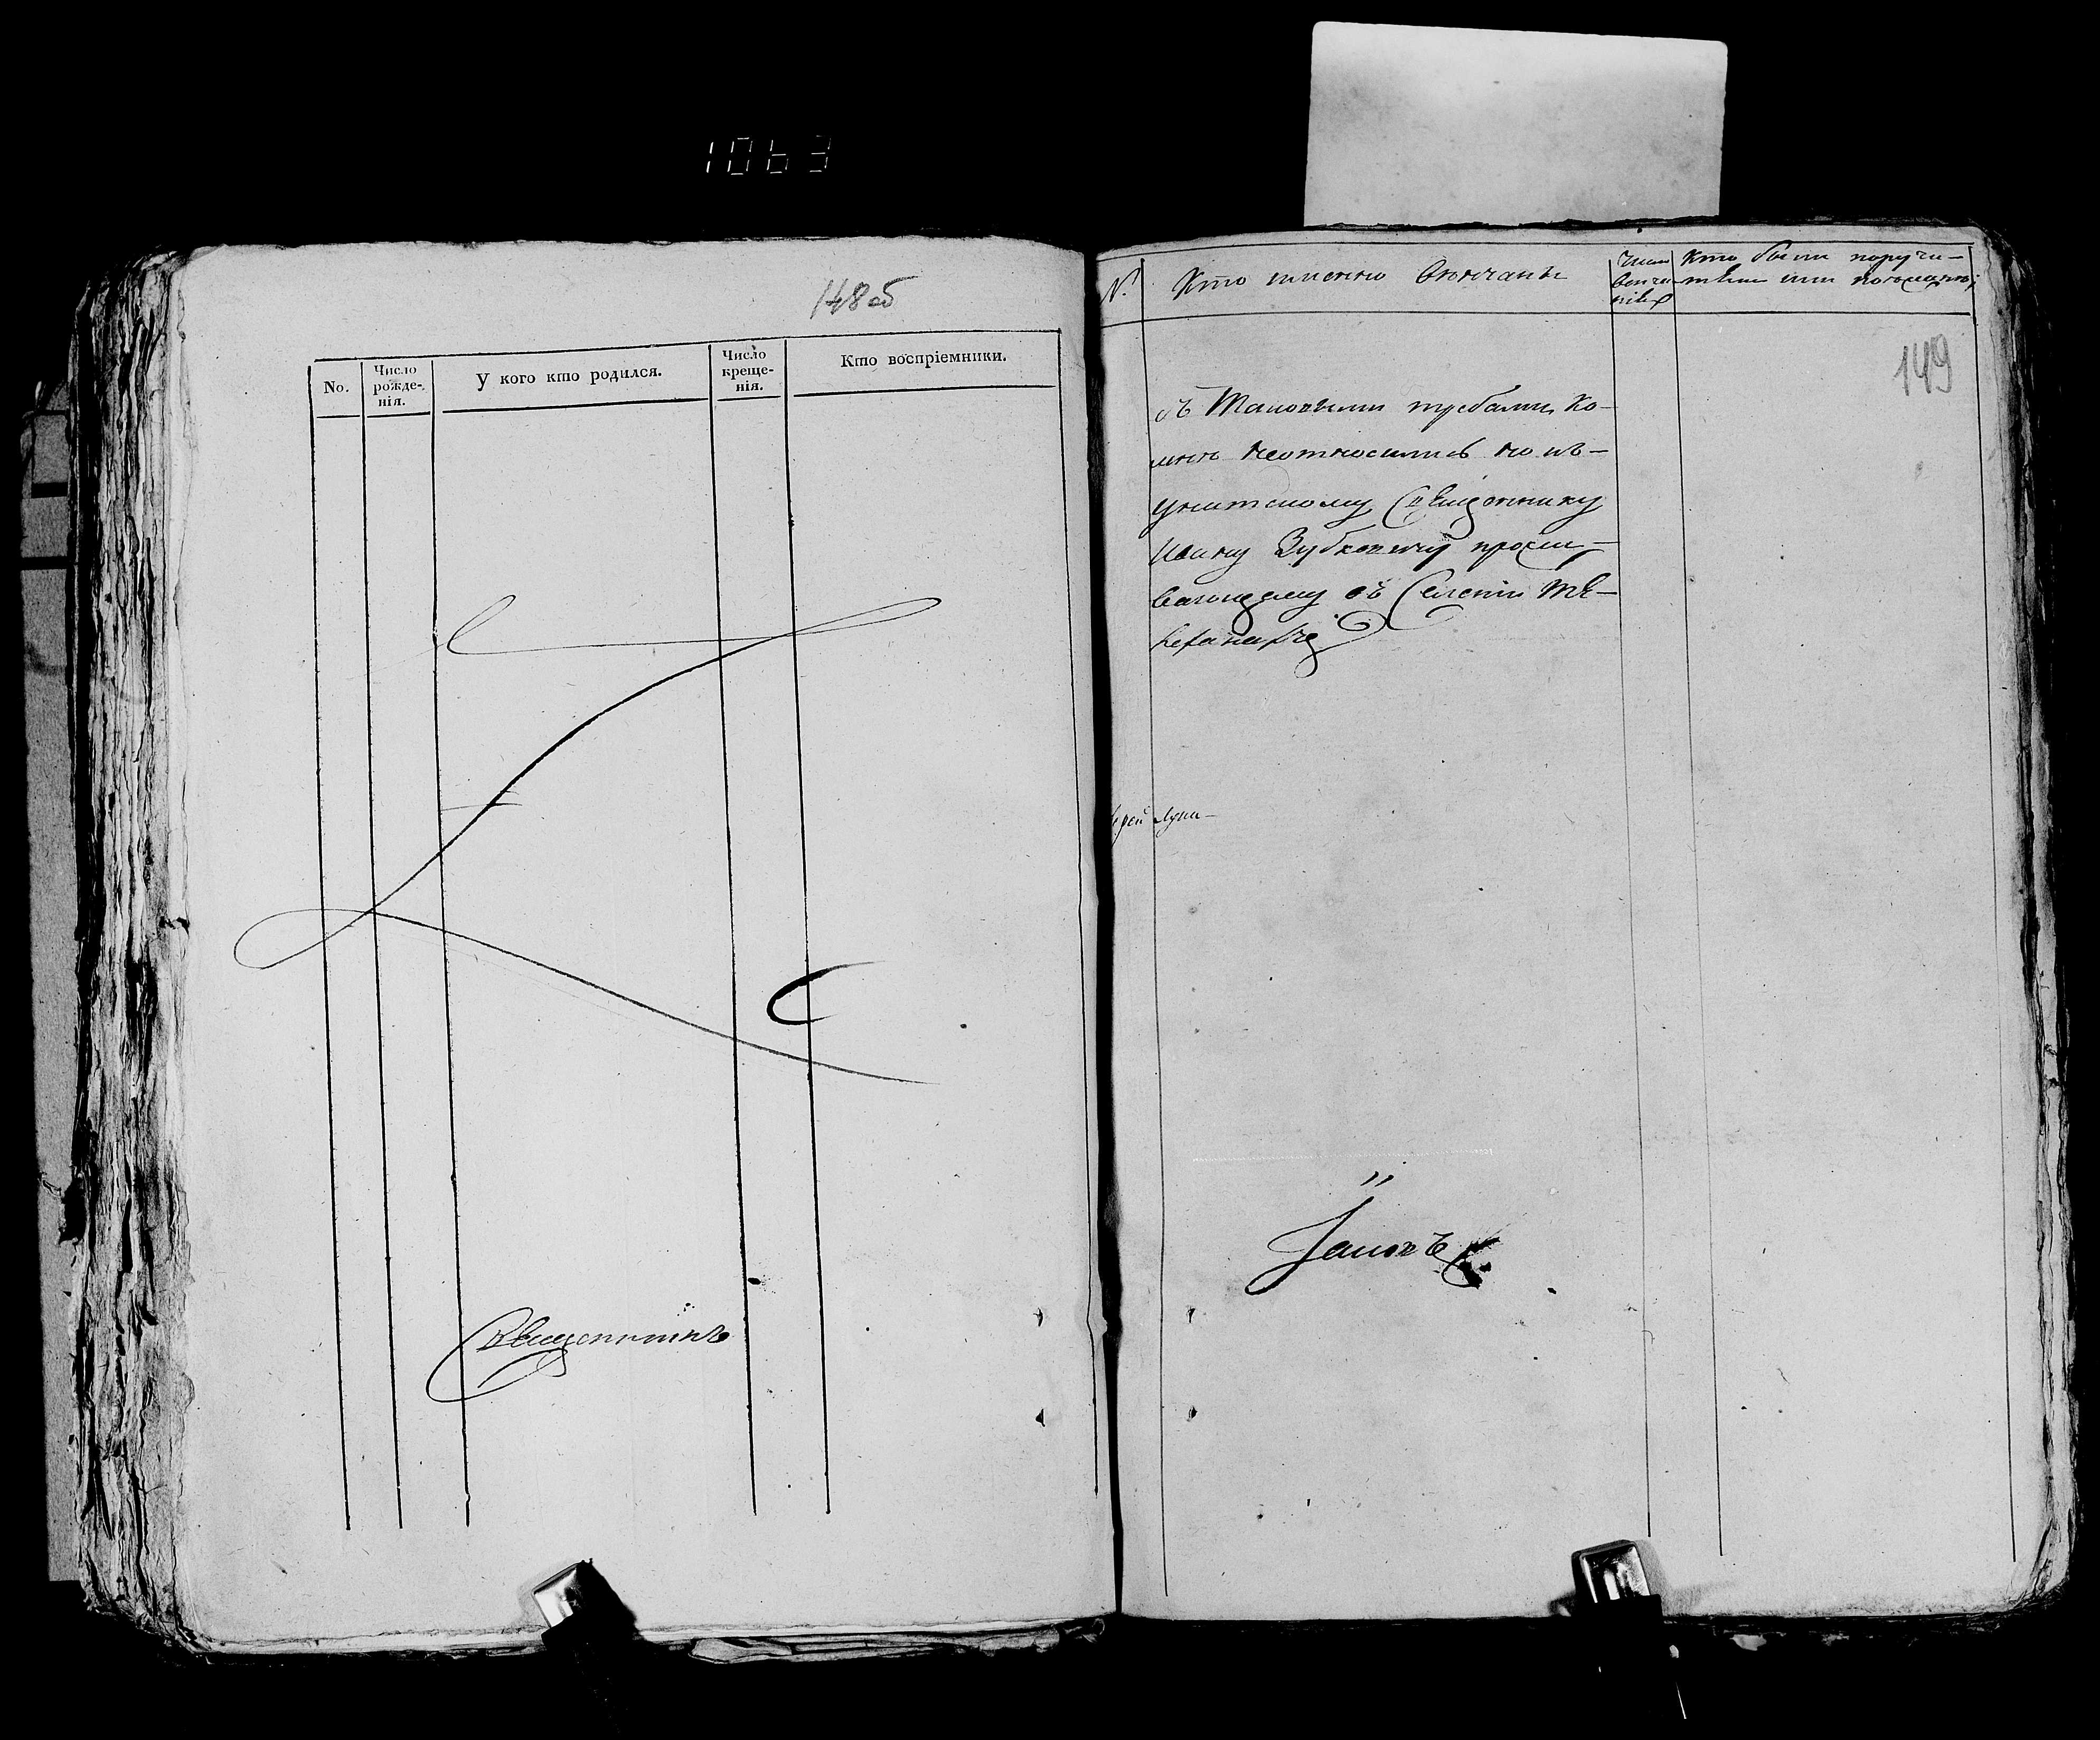 1063
148об
No.
Число рожде-
нія.
У кого кто родился.
Число креще-
нія.
Кто воспріемники.
Священникъ
№
Кто именно вѣнчаны
Число
венча
нія
Кто были поручи-
тѣли или
149
съ таковыми требами ко
мнѣ неотносились но къ
унитскому Священнику
Ивану Зубковичу прожи-
вающему въ Селеніи
Іаковъ